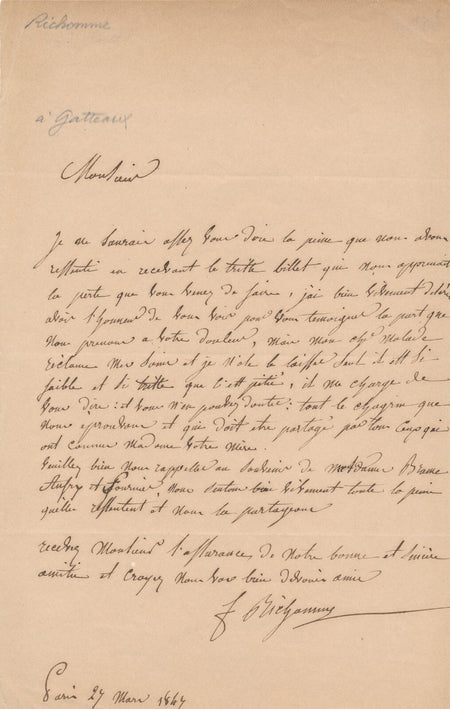 Richomme
à Gatteaux
Monsieur
Je ne saurais assez vous dire la peine que nous avons
ressenti en recevant le triste billet qui nous apprenait
la perte que vous venez de faire, j'ai bien vivement désiré
avoir l'honneur de vous voir pour vous temoigner la part que
nous prenons a votre douleur, mais mon cher malade
réclame mes soins et je n'ose le laisser seul il est si
faible et si triste que c'est pitié, il me charge de
vous dire : et vous n'en pouvez douter : tout le chagrin que
nous eprouvons et qui doit être partagé par tous ceux qui
ont connue madame votre mère.
Veuillez bien nous rappeller au souvenir de Mesdames
et Fournier, nous sentons bien vivement toute la peine
quelles ressentent et nous la partageons
recevez Monsieur l'assurance de notre bonne et sincère
amitié et croyez nous vos bien dévoués amis
f Richomme
Paris 27 Mars 1847